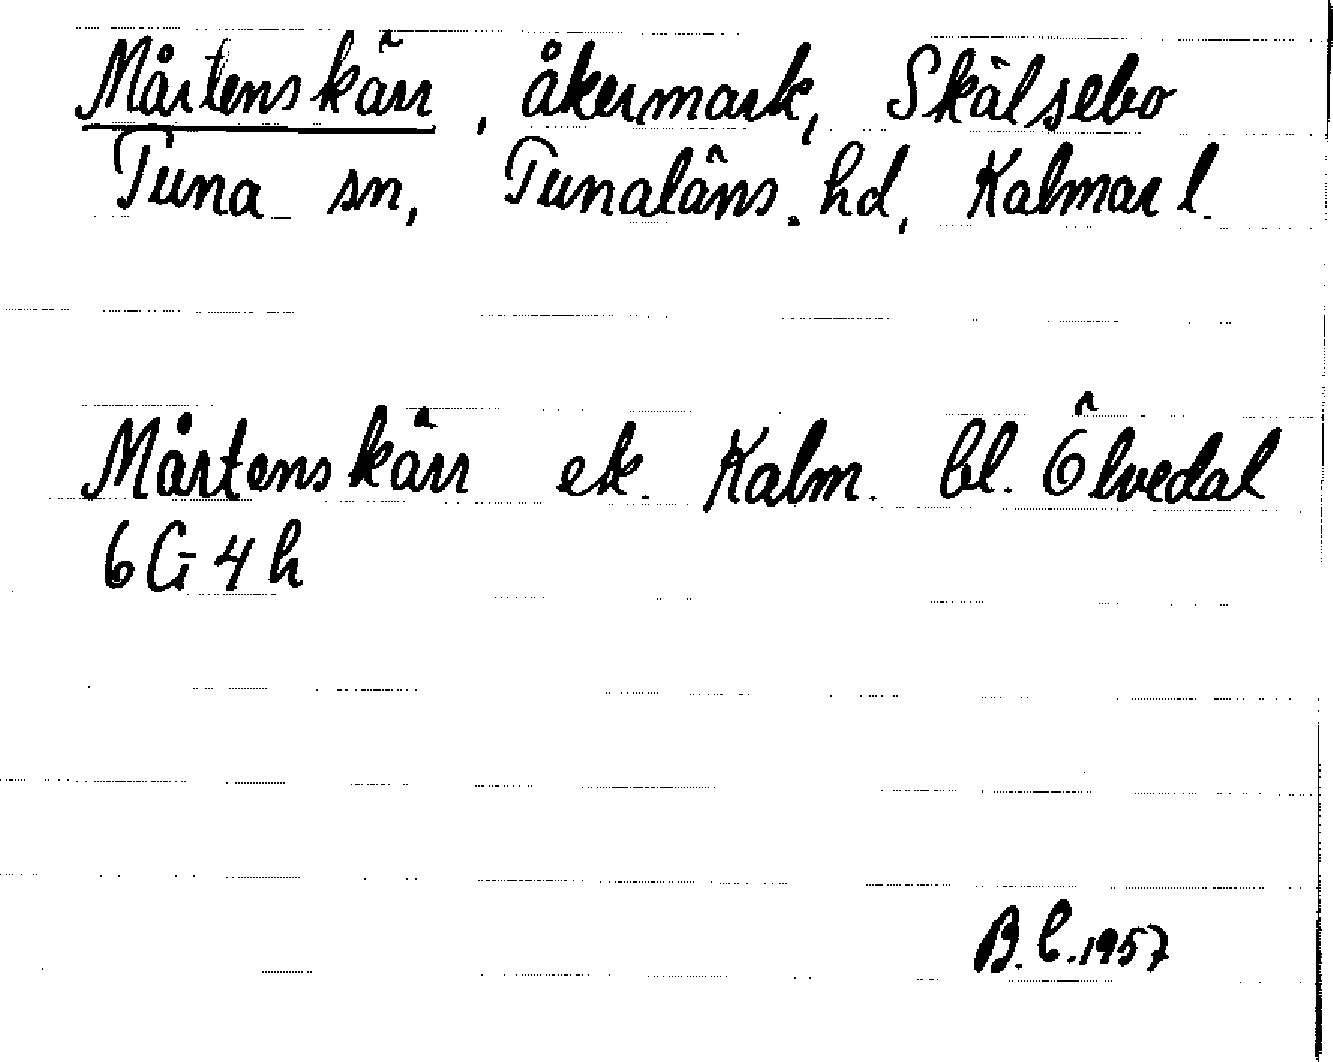 Mårtenskärr, åkermark, Skälsebo
Tuna sn, Tunaläns hd, Kalmar l.
Mårtenskärr ek. Kalm. bl. Ölvedal
6G4h
B.C.1957